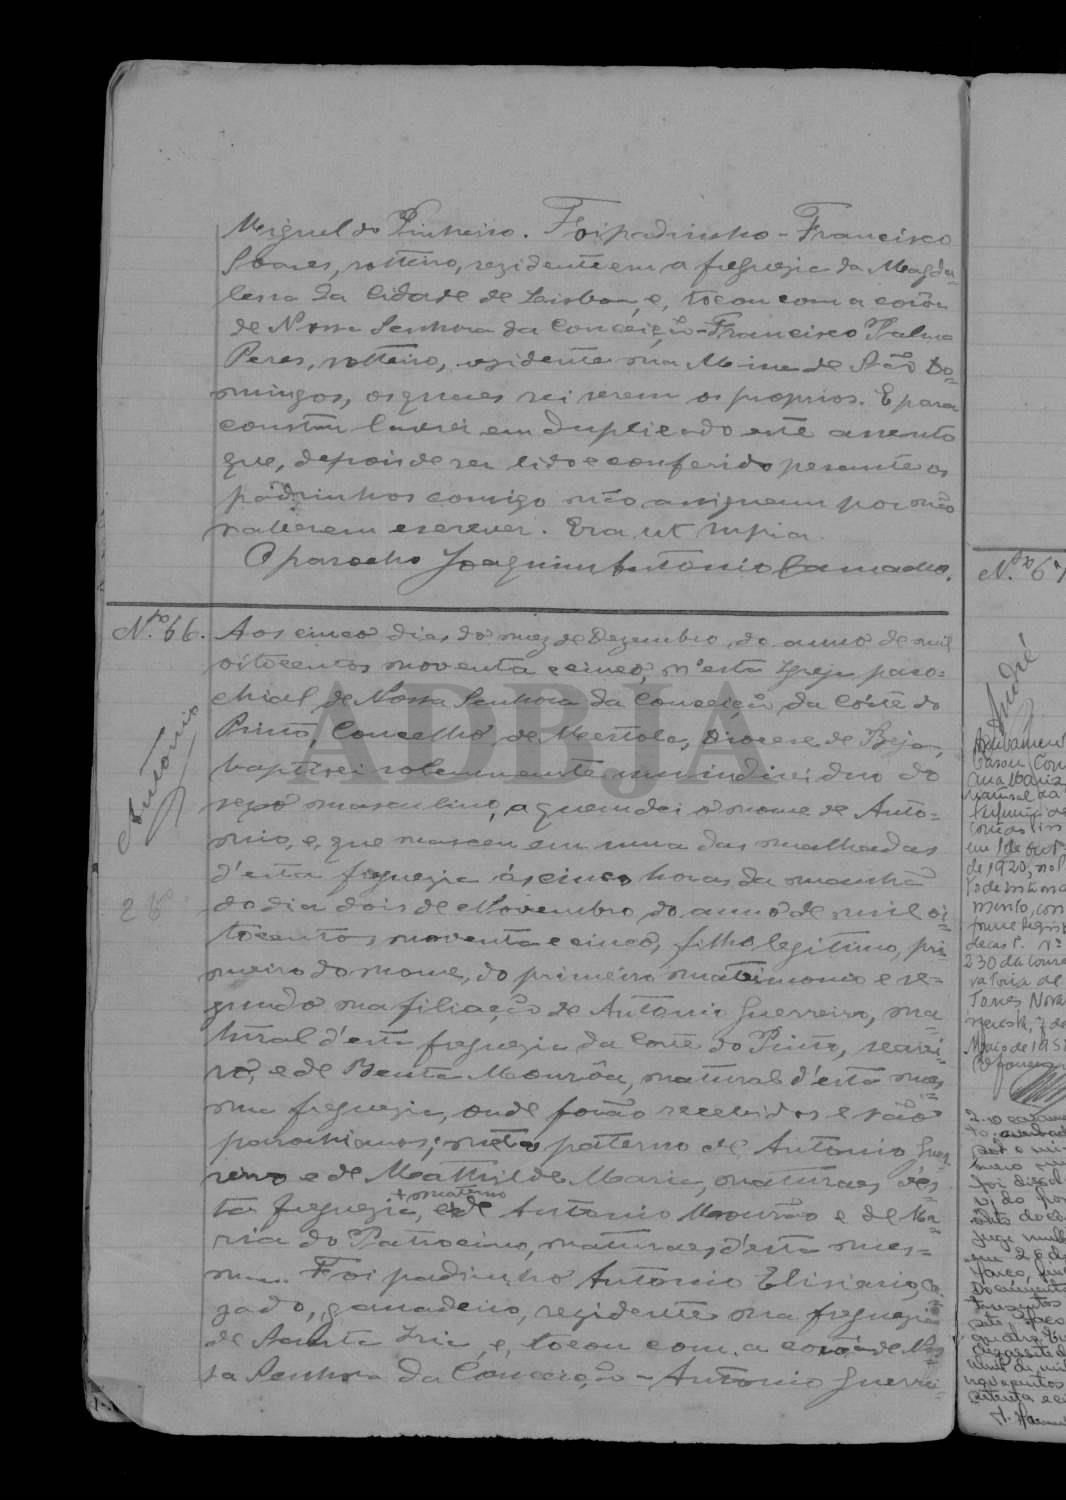 Miguel do Pinheiro. Foi padrinho - Francisco
Soares, solteiro, rezidente em a freguezia da Magda-
lena da Cidade de Lisboa, e, tocou com a corôa
de Nossa Senhora da Conceição - Francisco Palma
Peres, solteiro, rezidente na Mina de São Do-
mingos, os quaes sei serem os proprios. E para
constar lavrei em duplicado este assento
que, depois de ser lido e conferido perante os
padrinhos comigo não assignam por não
saberem escrever. Era ut supra.
O parocho Joaquim Antonio Camacho.
N.º 66.
Antonio
Aos cinco dias do mez de Dezembro do anno de mil
oitocentos noventa e cinco, n'esta Igreja paro-
chial de Nossa Senhora da Conceição da Côrte do
Pinto, Concelho de Mertola, Diocese de Beja,
baptisei solemnemente um individuo do
sexo masculino, a quem dei o nome de Anto-
nio, e, que nasceu em uma das malhadas
d'esta freguezia ás cinco horas da manhã
do dia dois de Novembro do anno de mil oi-
tocentos noventa e cinco, filho legitimo, pri-
meiro do nome, do primeiro matrimonio e se-
gundo na filiação de Antonio Guerreiro, na-
tural d'esta freguezia da Corte do Pinto, searei-
ro, e de Benta Mourôa, natural d'esta mes-
ma freguezia, onde forão recebidos e são
parochianos; neto paterno de Antonio Guer-
reiro e de Mathilde Maria, naturaes d'es-
ta freguezia, + materno
e de Antonio Mourão e de Ma-
ria do Patrocinio, naturaes d'esta mes-
ma. Foi padrinho Antonio Elisiario, ca-
zado, ganadeiro, rezidente na freguezia
de Santa Iria, e, tocou com a corôa de Nos-
sa Senhora da Conceição - Antonio Guerrei-
ADBJA
N.º 67
André
Casou
natural da
em 1 de
de 1920, no
mento, con
forme
230 da Conser
vatoria de
Torres Novas
Maio de 195